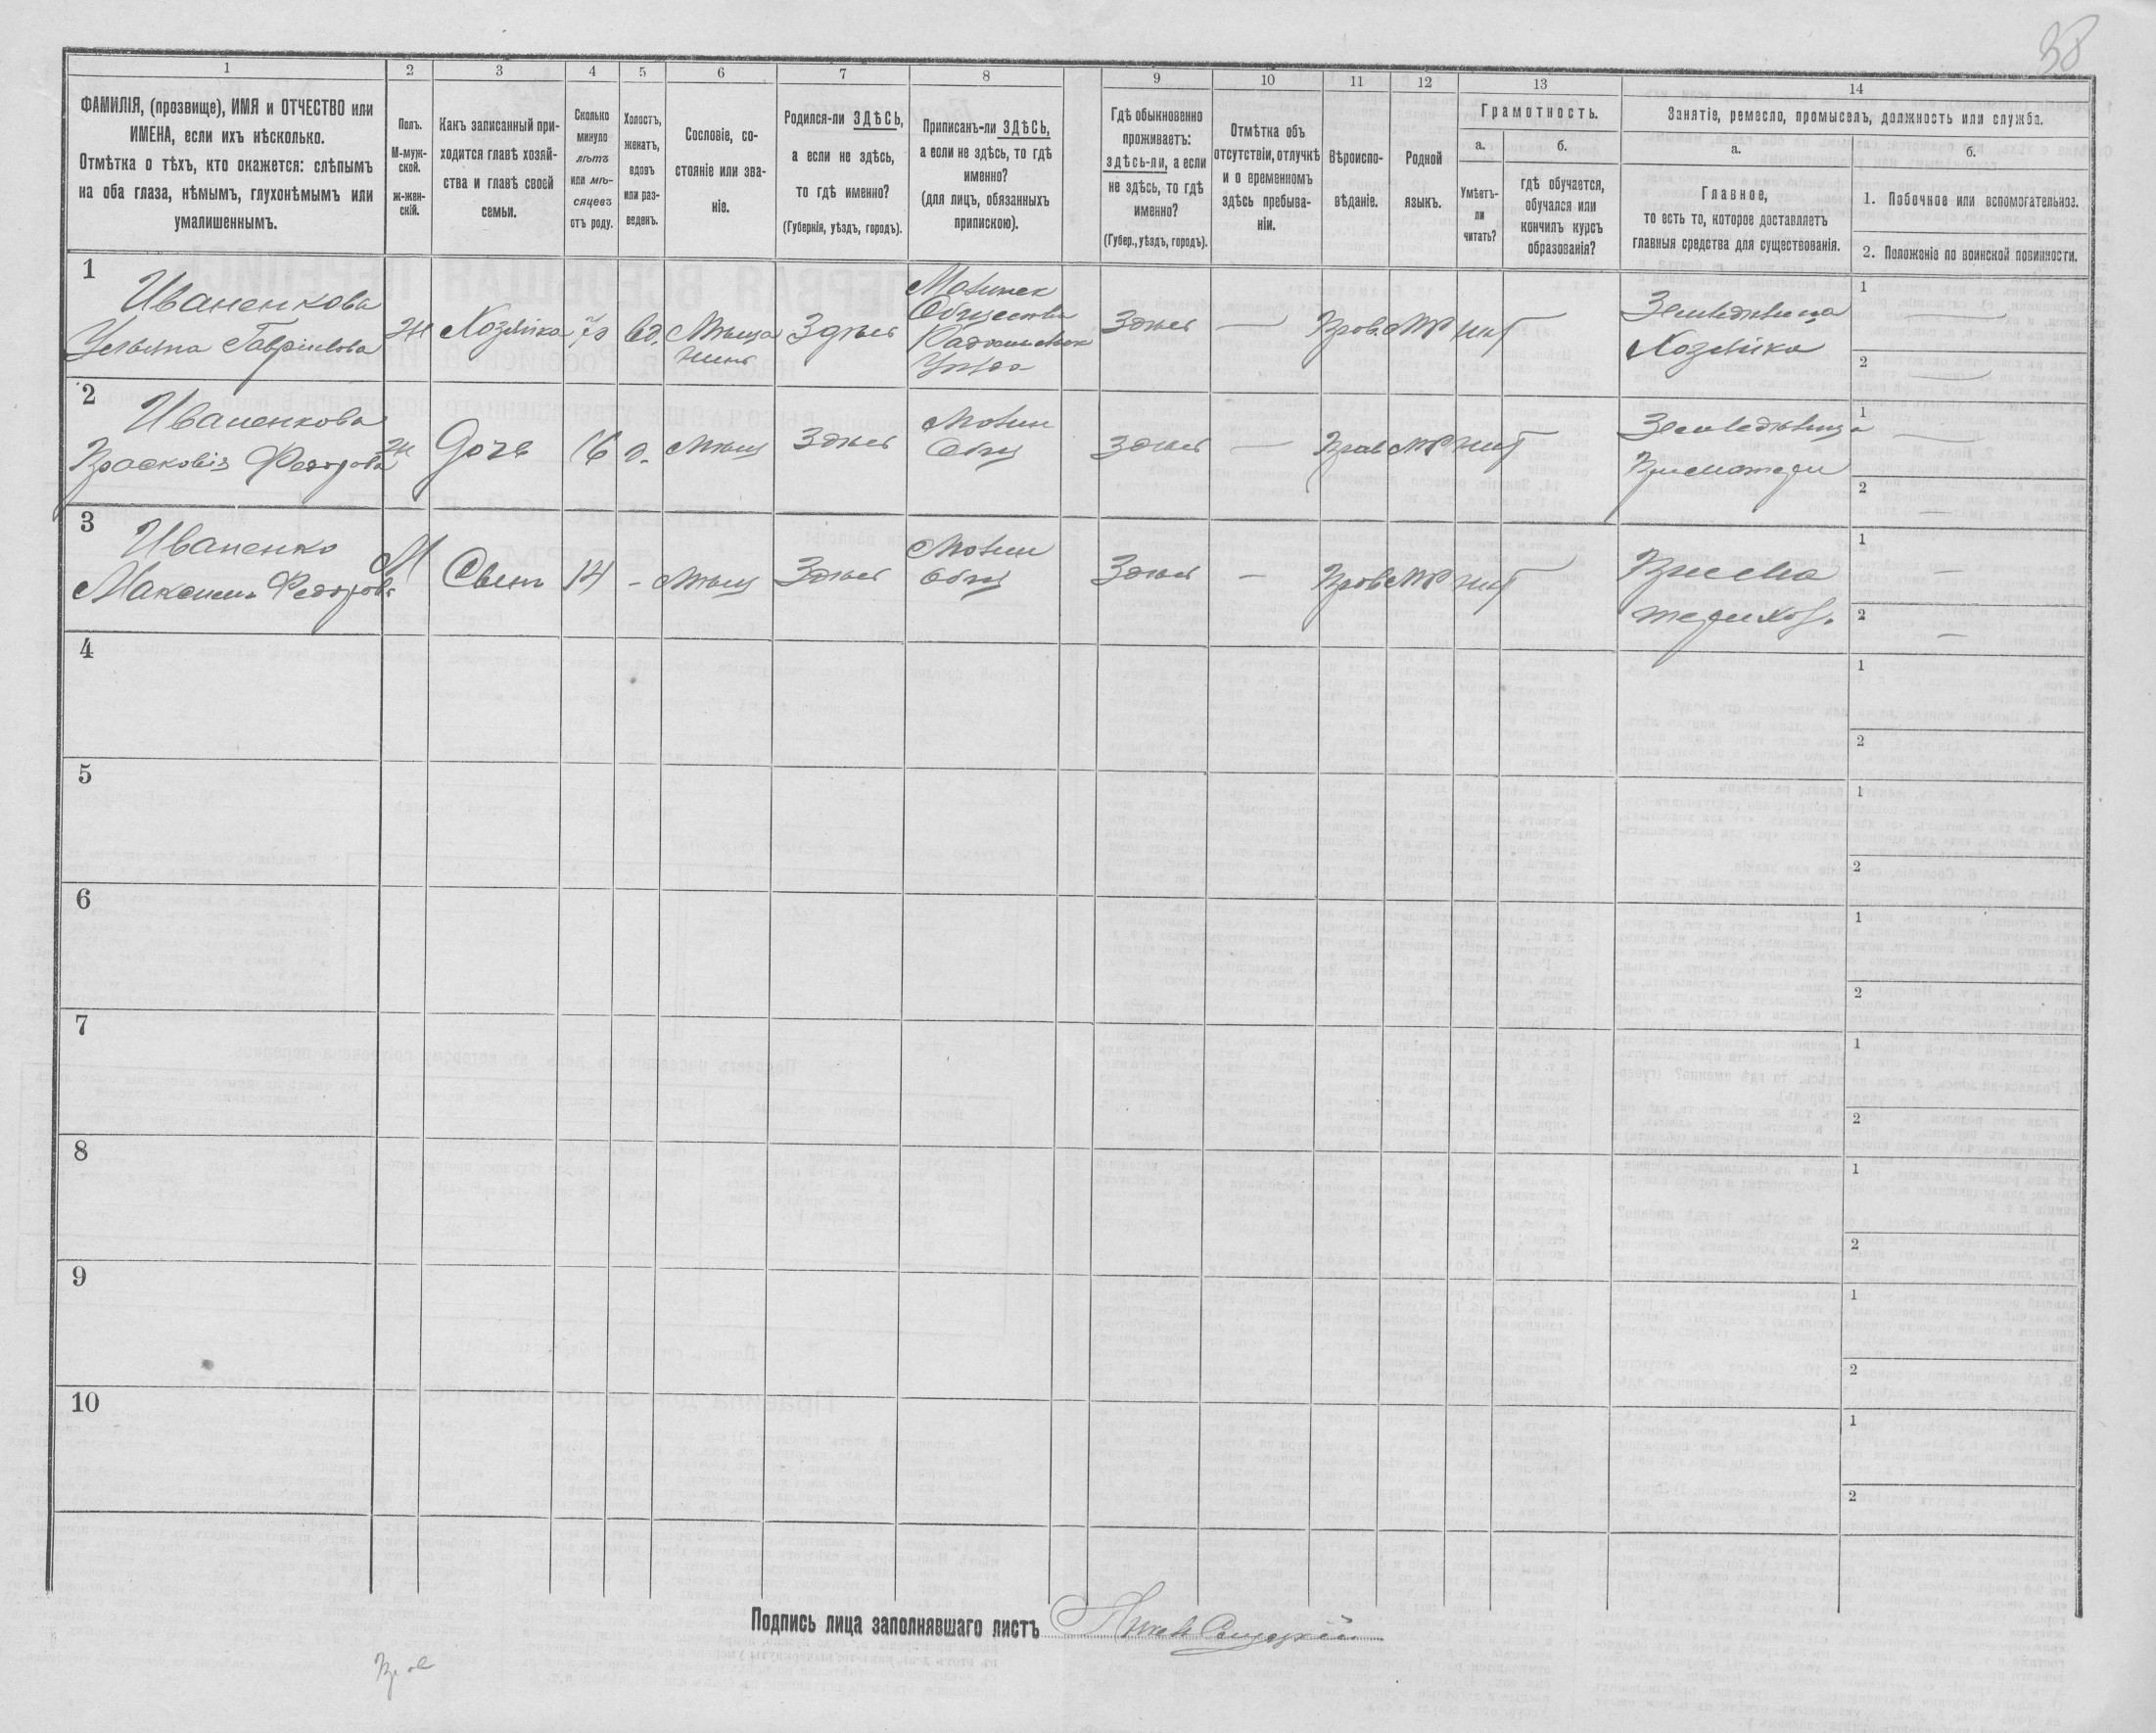 38
1 2 3 4 5 6 7 8 9 10 11 12 13 14
ФАМИЛІЯ, (прозвище), ИМЯ и ОТЧЕСТВО или
ИМЕНА, если ихъ нѣсколько.
Отмѣтка о тѣхъ, кто окажется: слѣпымъ
на оба глаза, нѣмымъ, глухонѣмымъ или
умалишеннымъ.
Полъ.
М-муж-
ской.
ж-жен-
скій.
Какъ записанный при-
ходится главѣ хозяй-
ства и главѣ своей
семьи.
Сколько
минуло
лѣтъ
или мѣ-
сяцевъ
отъ роду.
Холостъ,
женатъ,
вдовъ
или раз-
веденъ.
Сословіе, со-
стояніе или зва-
ніе.
Родился-ли ЗДѢСЬ,
а если не здѣсь,
то гдѣ именно?
(Губернія, уѣздъ, городъ).
Приписанъ-ли ЗДѢСЬ,
а если не здѣсь, то гдѣ
именно?
(для лицъ, обязанныхъ
припискою).
Гдѣ обыкновенно
проживаетъ:
здѣсь-ли, а если
не здѣсь, то гдѣ
именно?
(Губер., уѣздъ, городъ).
Отмѣтка объ
отсутствіи, отлучкѣ
и о временномъ
здѣсь пребыва-
ніи.
Вѣроиспо-
вѣданіе.
Родной
языкъ.
Грамотность.
а.
Умѣетъ-
ли
читать?
б.
гдѣ обучается,
обучался или
кончилъ курсъ
образованія?
Занятіе, ремесло, промыселъ, должность или служба.
а.
Главное,
то есть то, которое доставляетъ
главныя средства для существованія.
б.
1. Побочное или вспомогательное.
2. Положеніе по воинской повинности.
1
Иваненкова
Ульяна Гаврилова
Ж
Хозяйка
Вд.
Мѣща
Здѣсь
Общества
Уѣзда
Здѣсь
—
Прав.
МР
нѣт
Хозяйка
1 —
2 —
2
Иваненкова
Прасковія Федорова
Ж
Дочь
16
д.
Мѣщ
Здѣсь
Общ
Здѣсь
—
Прав
МР
нѣт
1 —
2 —
3
Иваненко
Максимъ Федоровъ
М
Сынъ
14
-
Мѣщ
Здѣсь
общ
Здѣсь
—
Прав
МР
нѣт
1 —
2 —
4
1
2
5
1
2
6
1
2
7
1
2
8
1
2
9
1
2
10
1
2
Подпись лица заполнявшаго листъ